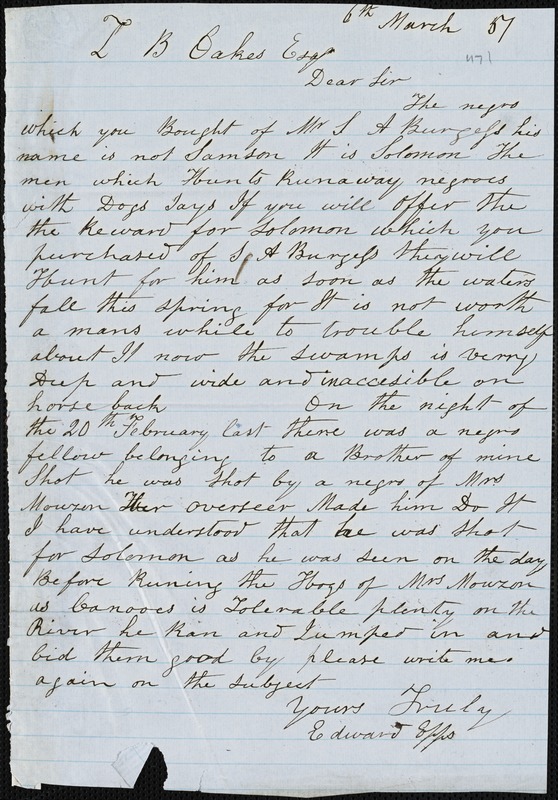 6th March 57
Z B Oakes Esqr
471
Dear Sir
The negro
which you Bought of Mr S A Burgess his
name is not Samson It is Solomon The
men which Hunts Runaway negroes
with Dogs Says If you will offer the
the Reward for Solomon which you
purchased of S A Burgess they will
Hunt for him as soon as the waters
fall this spring for It is not worth
a mans while to trouble himself
about It now the swamps is verry
Deep and wide and inaccesible on
horse back On the night of
the 20th February last there was a negro
fellow belonging to a Brother of mine
Shot he was Shot by a negro of Mrs
Mouzon Her overseer Made him Do It
I have understood that he was Shot
for Solomon as he was seen on the day
Before Runing the Hogs of Mrs Mouzon
as Canooes is Tolerable plenty on the
River he Ran and Jumped in and
bid them good by please write me
again on the Subject
Yours Truly
Edward Epps